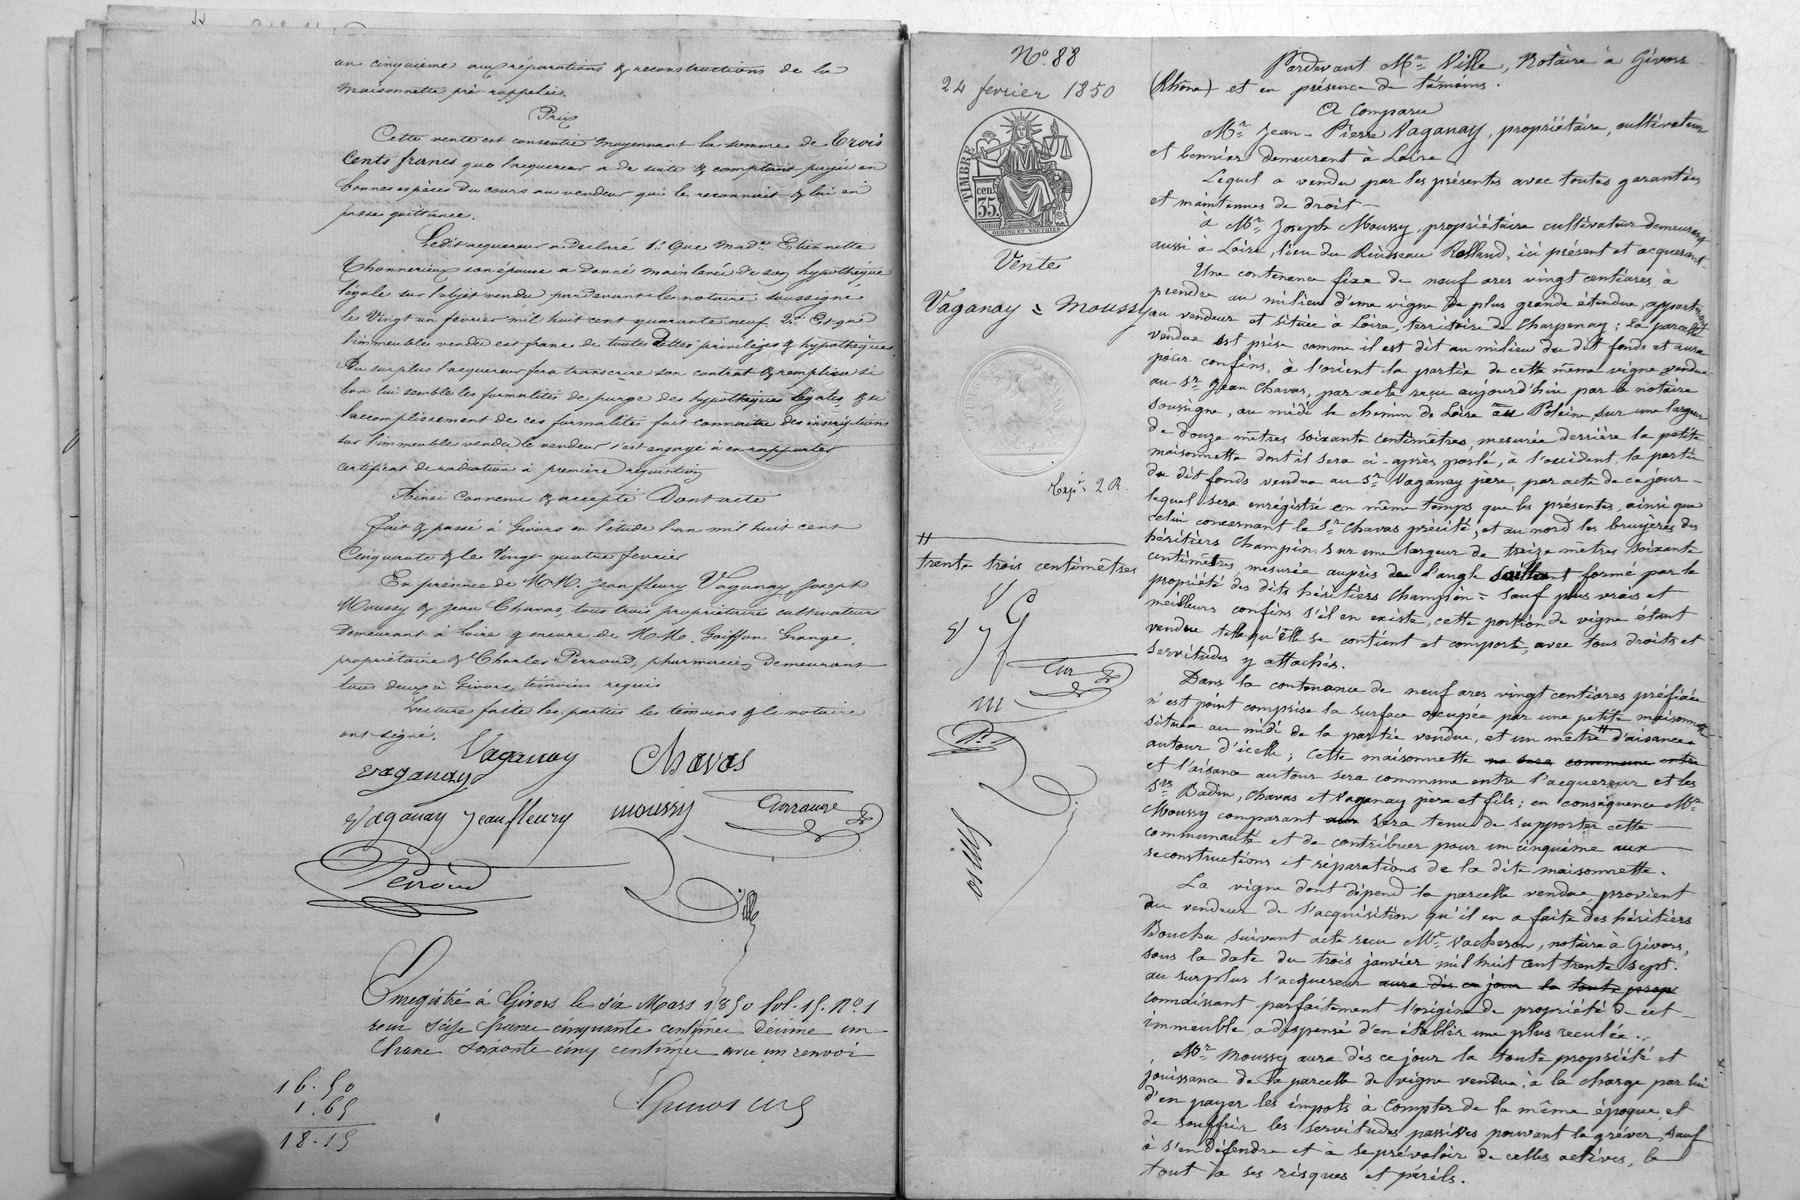 un cinquième aux réparations & reconstructions de la
maisonnette pré-rappelée.
Prix
Cette vente est consentie moyennant la somme de Trois
Cents francs que l'acquereur a de suite & comptant payée en
bonnes espèces du cours au vendeur qui le reconnait & lui en
passe quittance.
Ledit acquereur a declaré 1º Que Made Etiennette
Thonnerieux son épouse a donné mainlevée de son hypothèque
légale sur l'objet vendu pardevant le notaire soussigné
le Vingt un fevrier mil huit cent quarante neuf 2º Et que
l'immeuble vendu est franc de toutes dettes privilèges & hypothèques.
Au surplus l'acquereur fera transcrire son contrat & remplira si
bon lui semble les formalités de purge des hypothèques légales & si
l'accomplissement de ces formalités fait connaitre des inscriptions
sur l'immeuble vendu le vendeur s'est engagé à en rapporter
certificat de radiation à première réquisition
Ainsi convenu & accepté Dont acte
fait & passé à Givors en l'étude l'an mil huit cent
Cinquante & le Vingt quatre fevrier
En présence de M.M. Jean fleury Vaganay, Joseph
Moussy & Jean Chavas, tous trois propriétaires cultivateurs
demeurant à Loire & encore de M.M. Goiffon Grange,
propriétaire & Charles Perroud, pharmacien demeurant
tous deux à Givors, témoins requis
Lecture faite les parties les témoins & le notaire
ont signé.
Vaganay Chavas
Vaganay
Vaganay Jean fleury moussy
Perroud Ville
Enregistré à Givors le six Mars 1850 fol. 15. Nº 1
reçu Seize francs cinquante centimes décime un
franc soixante cinq centimes avec un renvoi
16.50
1.65
18.15
Nº 88
24 fevrier 1850
TIMBRE
35 cen.
Vente
Vaganay = Moussy
Exp. 2 R.
#
trente trois centimètres
V C
V J f
m
P.
Pardevant Me Ville, Notaire à Givors
(Rhône) et en présence de témoins.
A Comparu
Mr Jean-Pierre Vaganay, propriétaire, cultivateur
et bennier demeurant à Loire
Lequel a vendu par les présentes avec toutes garanties
et maintenues de droit —
à Mr Joseph Moussy, propriétaire cultivateur demeurant
aussi à Loire, lieu du Ruisseau Rolland, ici présent et acquerant
Une contenance fixe de neuf ares vingt centiares à
prendre au milieu d'une vigne de plus grande étendue, appartenant
au vendeur et située à Loire, territoire de Charpenay; la parcelle
vendue est prise comme il est dit au milieu du dit fonds et aura
pour confins, à l'orient la partie de cette même vigne vendue
au Sr Jean Chavas, par acte reçu aujourd'hui par le notaire
soussigné, au midi le chemin de Loire au Polein, sur une largeur
de douze mètres soixante centimètres, mesurée derrière la petite
maisonnette dont il sera ci-après parlé, à l'occident, la partie
du dit fonds vendue au Sr Vaganay père, par acte de ce jour —
lequel sera enrégistré en même temps que les présentes, ainsi que
celui concernant le Sr Chavas précité, et au nord les bruyères des
héritiers Champin, sur une largeur de treize mètres soixante
centimètres mesurée auprès de l'angle saillant formé par la
propriété des dits héritiers Champin = Sauf plus vrais et
meilleurs confins s'il en existe, cette portion de vigne étant
vendue telle qu'elle se contient et comporte, avec tous droits et
servitudes y attachés.
Dans la contenance de neuf ares vingt centiares préfixée
n'est point comprise la surface occupée par une petite maisonnette
située au midi de la partie vendue, et un mètre # d'aisances
autour d'icelle; cette maisonnette ne sera commune entre
et l'aisance autour sera commune entre l'acquereur et les
Srs Badin, Chavas et Vaganay père et fils; en conséquence Mr
Moussy comparant aura sera tenu de supporter cette —
communauté et de contribuer pour un cinquième aux
reconstructions et réparations de la dite maisonnette.
La vigne dont dépend la parcelle vendue, provient
au vendeur de l'acquisition qu'il en a faite des héritiers
Bouchu suivant acte reçu Me Vacheron, notaire à Givors,
sous la date du trois janvier mil huit cent trente sept.
au surplus l'acquereur aura dès ce jour la toute prop
connaissant parfaitement l'origine de propriété de cet —
immeuble, a dispensé d'en établir une plus reculée..
Mr Moussy aura dès ce jour la toute propriété et
jouissance de la parcelle de vigne vendue, à la charge par lui
d'en payer les impots à compter de la même époque et
de souffrir les servitudes passives pouvant la gréver, sauf
à s'en défendre et à se prévaloir de celles actives, le
tout à ses risques et périls.